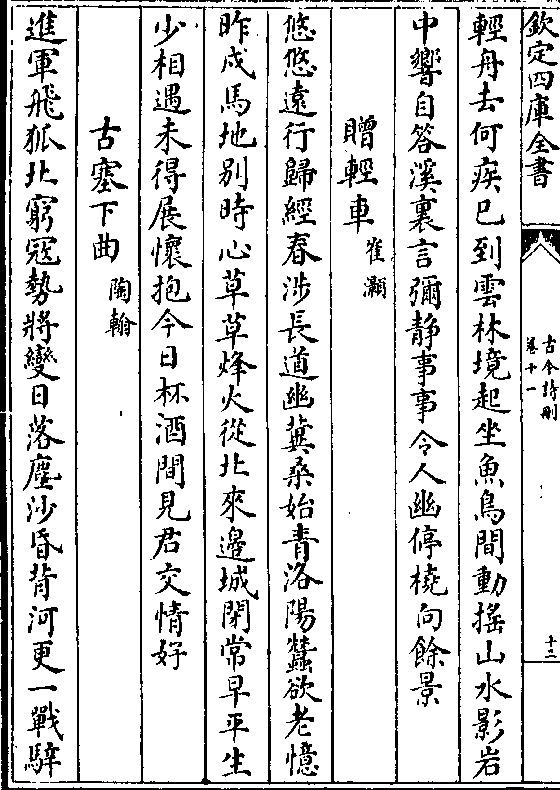 欽定四庫全書
古今詩刪
卷十一
十二
輕舟去何疾已到雲林境起坐魚鳥間動搖山水影岩
中響自答溪裏言彌静事事令人幽停橈向餘景
贈輕車
崔灝
悠悠遠行歸經春涉長道幽冀桑始青洛陽蠶欲老憶
昨戍馬地别時心草草烽火從北來邊城閉常早平生
少相遇未得展懷抱今日杯酒間見君交情好
古塞下曲
陶翰
進軍飛狐北窮寇勢將變日落塵沙昏背河更一戰騂